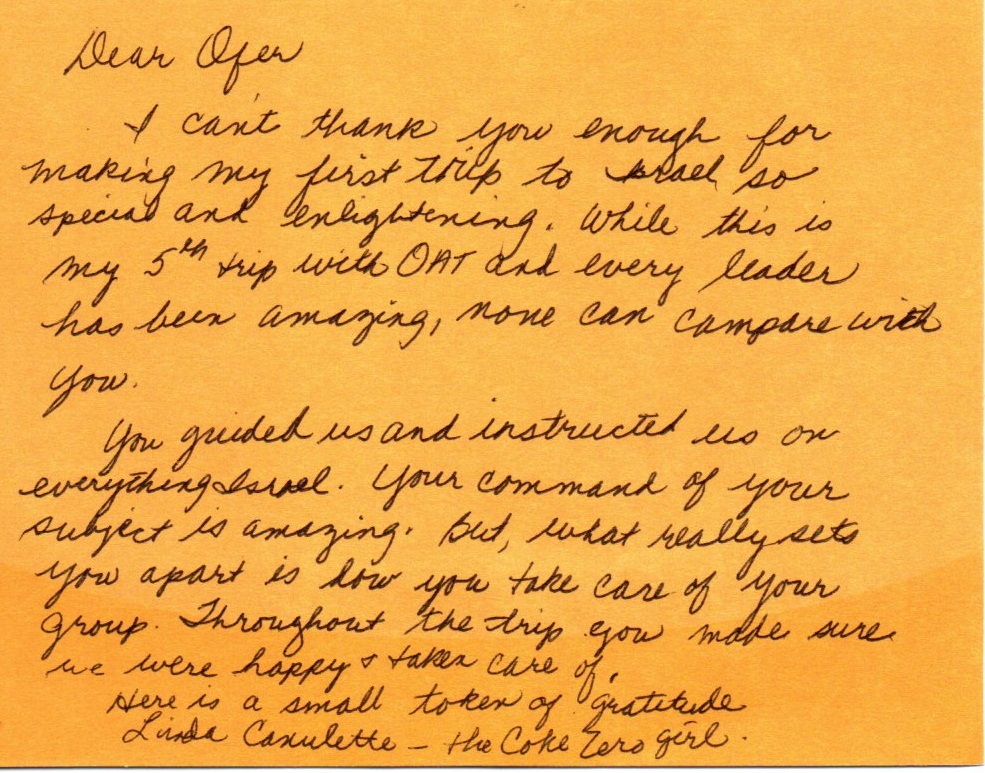 Dear Ofer
I can't thank you enough for
making my first trip to Israel so
special and enlightening. While this is
my 5th trip with OAT and every leader
has been amazing, none can compare with
you.
You guided us and instructed us on
everything Israel. Your command of your
subject is amazing. But, what really sets
you apart is how you take care of your
group. Throughout the trip you made sure
we were happy & taken care of.
Here is a small token of gratitude
Linda Canulette - the Coke Zero girl.